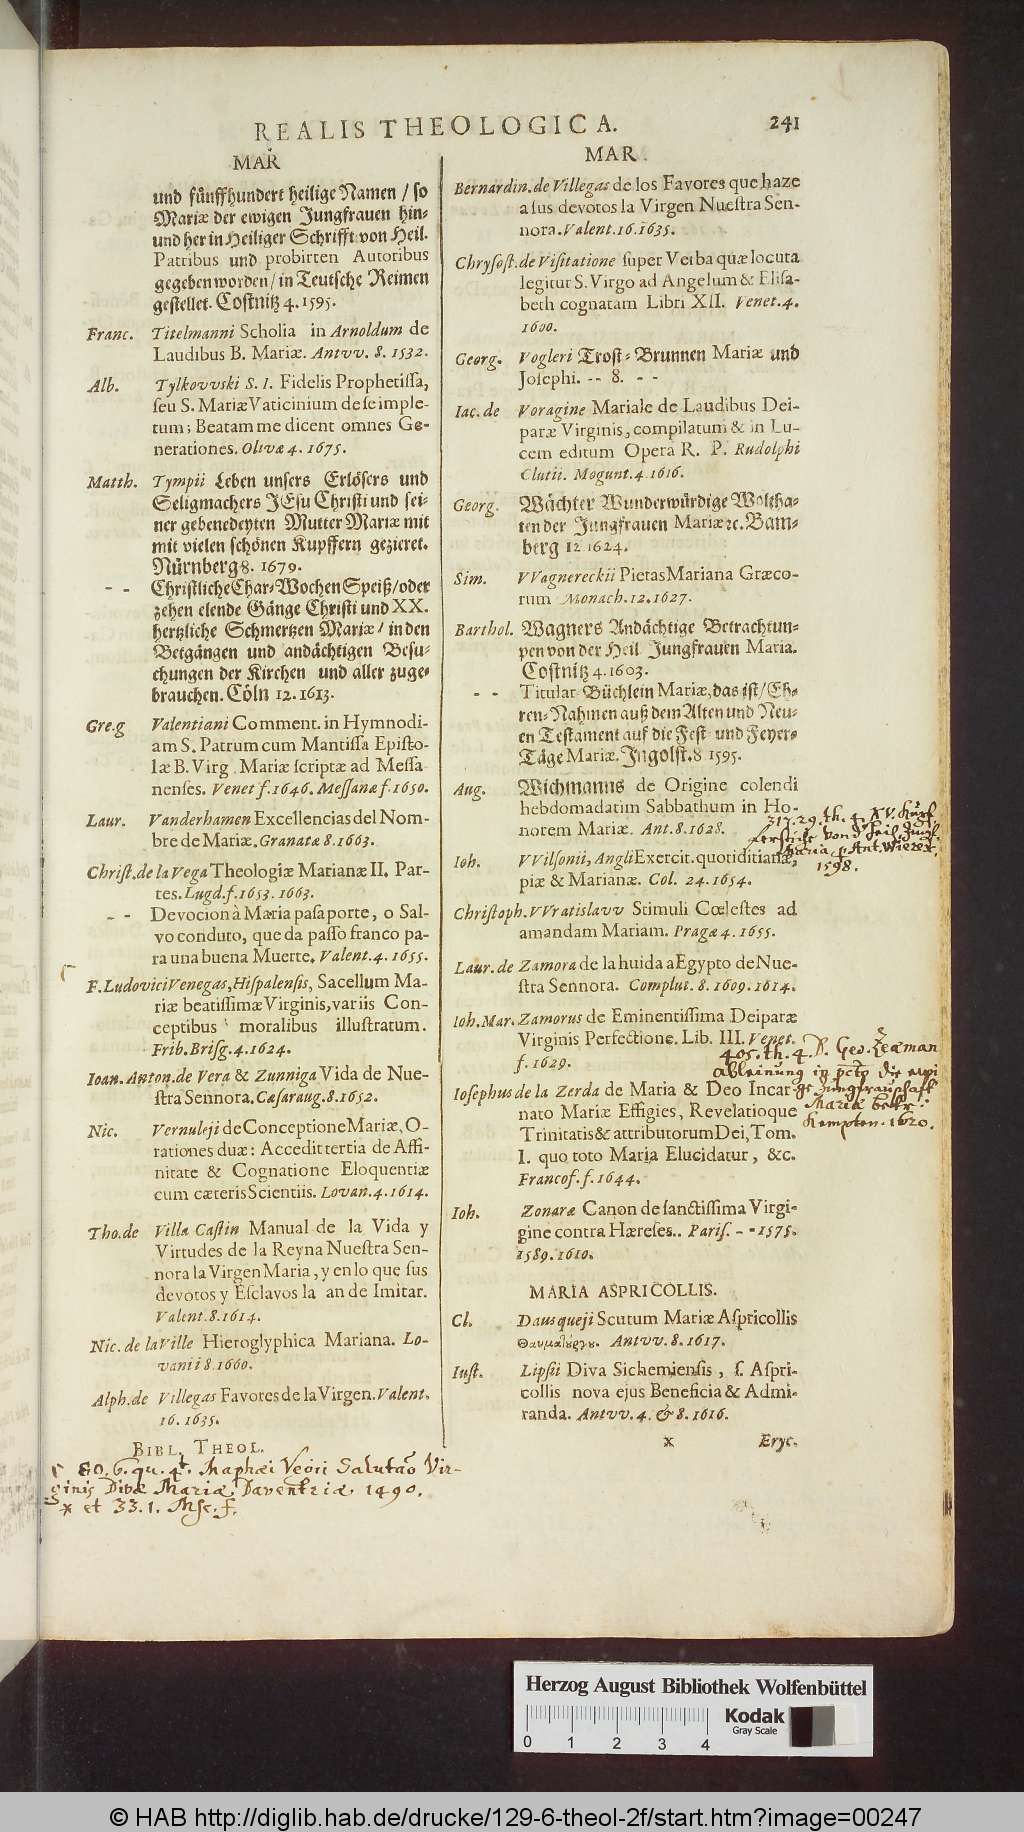 REALIS THEOLOGICA. 241
MAR
und fůnffhundert heilige Namen / so
Mariæ der ewigen Jungfrauen hin-
und her in Heiliger Schrifft von Heil.
Patribus und probirten Autoribus
gegeben worden / in Teutsche Reimen
gestellet. Costnitz 4. 1595.
Franc. Titelmanni Scholia in Arnoldum de
Laudibus B. Mariæ. Antvv. 8. 1532.
Alb. Tylkovvski S. I. Fidelis Prophetiſſa,
ſeu S. Mariæ Vaticinium de ſe imple-
tum; Beatam me dicent omnes Ge-
nerationes. Olivæ 4. 1675.
Matth. Tympii Leben unsers Erlösers und
Seligmachers JEsu Christi und sei-
ner gebenedeyten Mutter Mariæ mit
mit vielen schönen Kupffern gezieret.
Nürnberg 8. 1679.
- - Christliche Char-Wochen Speiß / oder
zehen elende Gänge Christi und XX.
hertzliche Schmertzen Mariæ / in den
Betgängen und andächtigen Besu-
chungen der Kirchen und aller zuge-
brauchen. Cöln 12. 1613.
Gre.g Valentiani Comment. in Hymnodi-
am S. Patrum cum Mantiſſa Epiſto-
læ B. Virg. Mariæ ſcriptæ ad Meſſa
nenſes. Venet f. 1646. Meſſanæ f. 1650.
Laur. Vanderhamen Excellencias del Nom-
bre de Mariæ. Granatæ 8. 1663.
Chriſt. de la Vega Theologiæ Marianæ II. Par-
tes. Lugd. f. 1653. 1663.
- - Devocion à Maria paſaporte, o Sal-
vo conduto, que da paſſo franco pa-
ra una buena Muerte. Valent. 4. 1655.
F. Ludovici Venegas, Hiſpalenſis, Sacellum Ma-
riæ beatiſſimæ Virginis, variis Con-
ceptibus moralibus illuſtratum.
Frib. Briſg. 4. 1624.
Ioan. Anton. de Vera & Zunniga Vida de Nue-
ſtra Sennora. Cæſaraug. 8. 1652.
Nic. Vernuleji de Conceptione Mariæ, O-
rationes duæ: Accedit tertia de Affi-
nitate & Cognatione Eloquentiæ
cum cæteris Scientiis. Lovan. 4. 1614.
Tho. de Villa Caſtin Manual de la Vida y
Virtudes de la Reyna Nueſtra Sen-
nora la Virgen Maria, y en lo que ſus
devotos y Eſclavos la an de Imitar.
Valent. 8. 1614.
Nic. de la Ville Hieroglyphica Mariana. Lo-
vanii 8. 1660.
Alph. de Villegas Favores de la Virgen. Valent.
16. 1635.
BIBL. THEOL.
60. 6. qu. 4t. Maphæi Vegii Salutaõ Vir-
ginis Divæ Mariæ. Daventriæ. 1490.
* et 33. 1. Msc. f.
MAR.
Bernardin. de Villegas de los Favores que haze
a ſus devotos la Virgen Nueſtra Sen-
nora. Valent. 16. 1635.
Chryſoſt. de Viſitatione ſuper Verba quæ locuta
legitur S. Virgo ad Angelum & Eliſa-
beth cognatam Libri XII. Venet. 4.
1600.
Georg. Vogleri Trost-Brunnen Mariæ und
Joſephi. - - 8. - -
Iac. de Voragine Mariale de Laudibus Dei-
paræ Virginis, compilatum & in Lu-
cem editum Opera R. P. Rudolphi
Clutii. Mogunt. 4. 1616.
Georg. Wächter Wunderwürdige Woltha-
ten der Jungfrauen Mariæ ꝛc. Bam-
berg 12 1624.
Sim. VVagnereckii Pietas Mariana Græco-
rum Monach. 12. 1627.
Barthol. Wagners Andächtige Betrachtun-
gen von der Heil Jungfrauen Maria.
Costnitz 4. 1603.
- - Titular Büchlein Mariæ, das ist / Eh-
ren-Nahmen auß dem Alten und Neu-
en Testament auf die Fest- und Feyer-
Täge Mariæ. Ingolst. 8 1595.
Aug. Wichmanns de Origine colendi
hebdomadatim Sabbathum in Ho-
norem Mariæ. Ant. 8. 1628.
317. 29. th. 4. XV. Kupf
ferstiche von d. heil. Jungf
Maria p Ant. Wierex.
1598.
Ioh. VVilſonii, Angli Exercit. quotiditianæ,
piæ & Marianæ. Col. 24. 1654.
Chriſtoph. VVratislavv Stimuli Cœleſtes ad
amandam Mariam. Pragæ 4. 1655.
Laur. de Zamora de la huida a Egypto de Nue-
ſtra Sennora. Complut. 8. 1609. 1614.
Ioh. Mar. Zamorus de Eminentiſſima Deiparæ
Virginis Perfectione. Lib. III. Venet.
f. 1629.
405. th. 4. D. Geo. Zeæman
Ableinung in pcto die ewi
ge Jungfrauschaft
Mariæ betr.
Kempten. 1620.
Ioſephus de la Zerda de Maria & Deo Incar-
nato Mariæ Effigies, Revelatioque
Trinitatis & attributorum Dei, Tom.
I. quo toto Maria Elucidatur, &c.
Francof. f. 1644.
Ioh. Zonaræ Canon de ſanctiſſima Virgi-
gine contra Hæreſes.. Pariſ. - - 1575.
1589. 1610.
MARIA ASPRICOLLIS.
Cl. Dausqueji Scutum Mariæ Aſpricollis
Θαυματέργου. Antvv. 8. 1617.
Iuſt. Lipſii Diva Sichemienſis, ſ. Aſpri-
collis nova ejus Beneficia & Admi-
randa. Antvv. 4. & 8. 1616.
x Eryc.
Herzog August Bibliothek Wolfenbüttel
Kodak
Gray Scale
0 1 2 3 4
© HAB http://diglib.hab.de/drucke/129-6-theol-2f/start.htm?image=00247